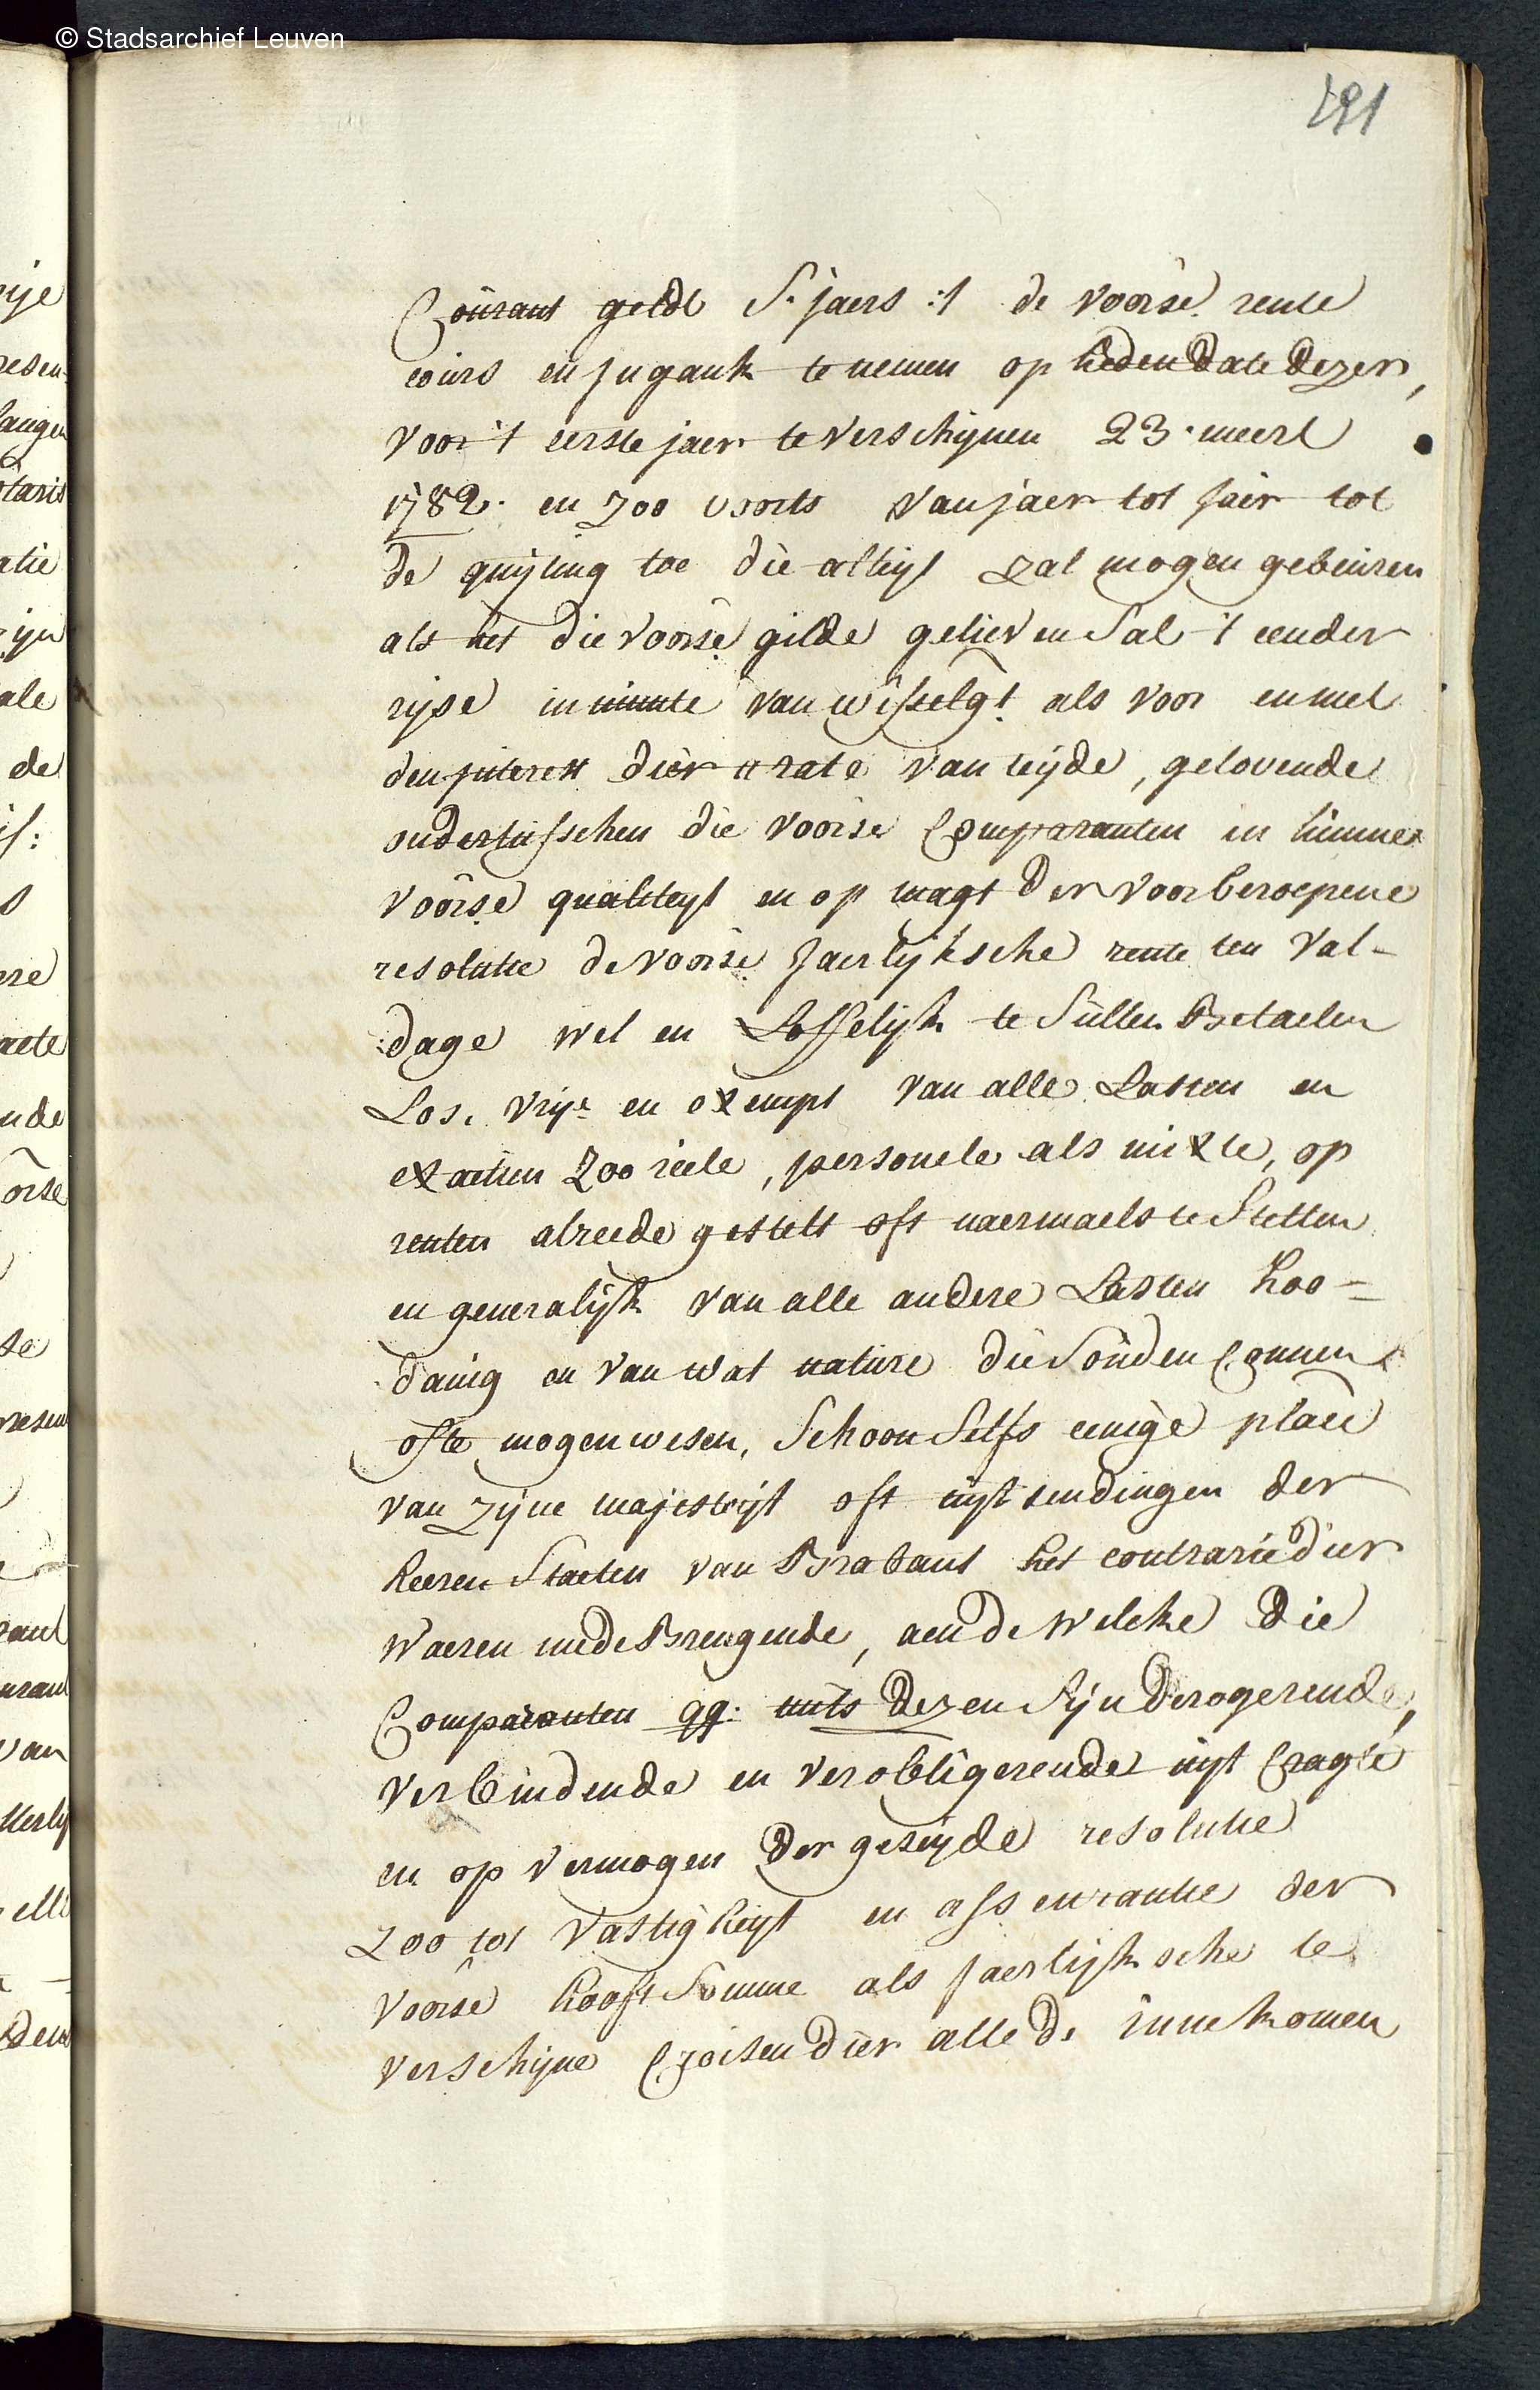 © Stadsarchief Leuven
191
Courant geldt S. jaers :t de voorse. rente
cours en jngank te nemen op heden date dezer,
voor 't eerste jaer te verschynen 23. meert
1782. en zoo voorts van jaer tot jaer tot
de quyting toe die altyt zal mogen gebeuren
als het die voorse gilde gelieven sal 't eender
ryse in munte van wisselgt. als voor en met
den jnterest dier rate van teyde, gelovende
ondertusschen die voorse Comparanten in hunne
voorse qualiteyt en op magt der voorberoepene
resolutie de voorse jaerlyksche rente ten val-
dage wel en Loffelyk te sullen Betaelen
Los, vrye en exempt van alle Lasten en
exactien zoo reele, personele als mixte, op
renten alreede gestelt oft naermaels te stellen
en generalyk van alle andere Lasten hoo-
danig en van wat nature die souden connen
ofte mogen wesen, schoon selfs eenige placc
van zyne majesteyt oft uytsendingen der
heeren Staeten van Brabant het contrarie dier
waeren medeBrengende, aen de welcke die
Comparanten qq. mits dezen syn derogerende,
verbindende en verobligerende uyt cragte
en op vermogen der geseyde resolutie
zoo tot vastigheyt en asseurantie der
voorse hooftsomme als jaerlyksche te
verschyne croisen dier alle de innekomen